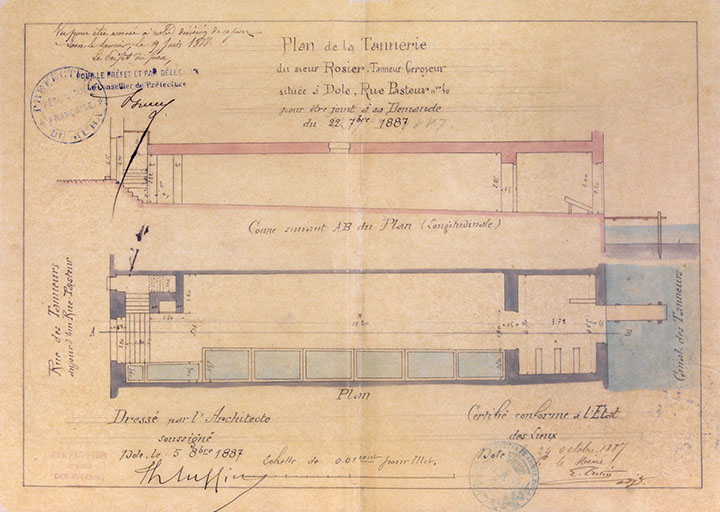 Vu pour être annexé à notre décision de ce jour
Lons le Saunier, le 9 Juin 1888.
Le Préfet du Jura,
POUR LE PRÉFET ET PAR DÉLÉGATION
Le Conseiller de Préfecture
PRÉFECTURE
RÉPUBLIQUE
FRANÇAISE
DU JURA
Plan de la Tannerie
du sieur Rosier, Tanneur-Corroyeur
située à Dole, Rue Pasteur n° 40
pour être joint à sa Demande
du 22 7bre 1887
Coupe suivant AB du Plan (Longitudinale)
Rue des Tanneurs
aujourd'hui Rue Pasteur
A
3.78
B
Canal des Tanneurs
Plan
Dressé par l'Architecte
soussigné
Dole, le 5 8bre 1887
Echelle de 0.01cent pour Mèt.
Certifié conforme à l'Etat
des Lieux
Dole 24 octobre 1887
le Maire